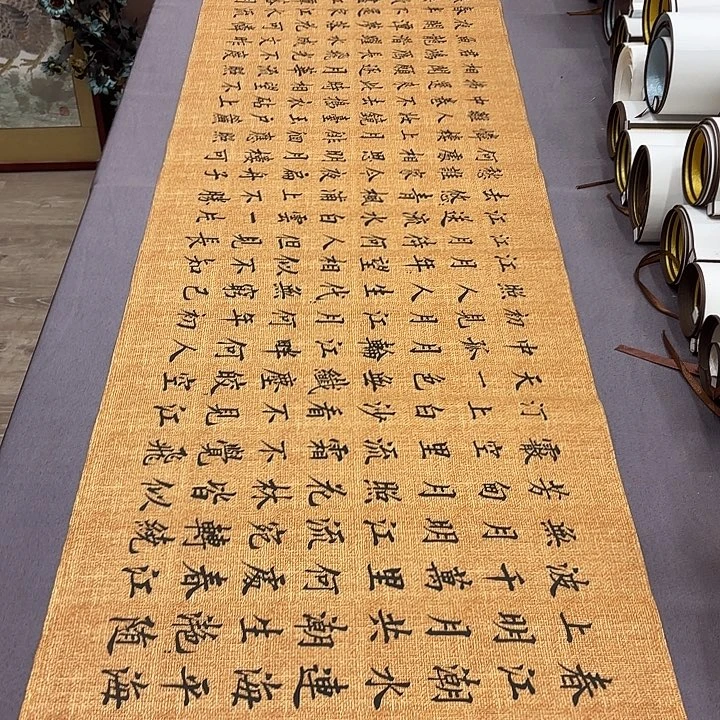 春江潮水連海平海
上明月共潮生灧隨
波千萬里何處春江
無月明江流宛轉繞
芳甸月照花林皆似
霰空里流霜不覺飛
汀上白沙看不見江
天一色無纖塵皎空
中孤月輪江畔何人
初見月江月何年初
照人人生代無窮已
江月年望相似不知
江月待何人但見長
江送流水白雲一片
去悠青楓浦上不勝
愁誰家今夜扁舟子
何處相思明月樓可
憐樓上月徘徊應照
離人妝鏡臺玉戶簾
中卷不去搗衣砧上
拂還來此時相望不
相聞願逐月華流照
君鴻雁長飛光不度
魚龍潛躍水成文昨